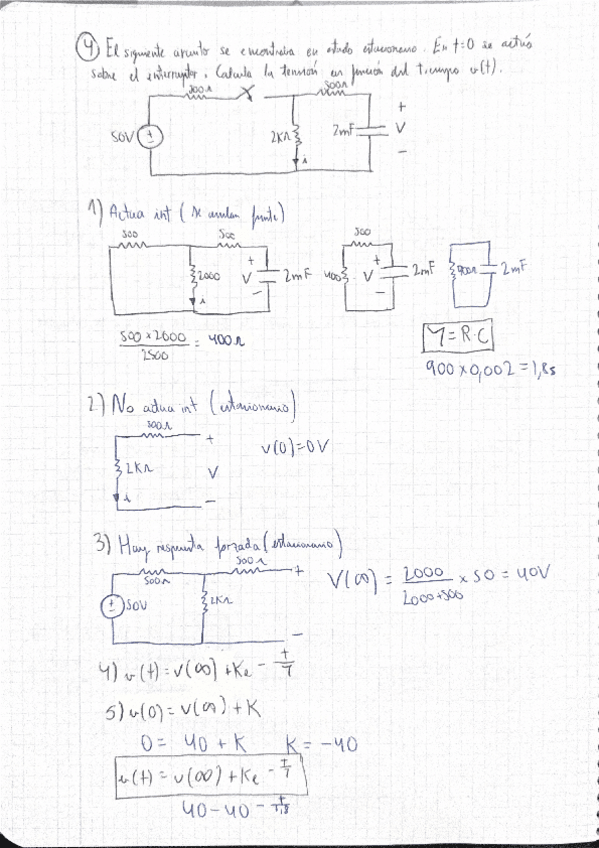 4) El siguiente circuito se encontraba en estado estacionario. En t=0 se actúa
sobre el interruptor. Calcula la tensión en función del tiempo v(t).
500Ω 500Ω
50V 2KΩ 2mF + V -
i
1) Actua int (se anulan fuente)
500 500 500
2000 + V - 2mF 400 + V - 2mF 900Ω 2mF
i
500 × 2000 / 2500 = 400Ω
τ = R·C
900 × 0,002 = 1,8s
2) No actua int (estacionario)
500Ω
2KΩ + V - v(0)=0V
i
3) Hay respuesta forzada (estacionario)
500Ω 500Ω +
50V 2KΩ -
V(∞) = 2000 / 2000+500 × 50 = 40V
4) v(t) = v(∞) + Ke - t/τ
5) v(0) = v(∞) + K
0 = 40 + K K = -40
v(t) = v(∞) + Ke - t/τ
40 - 40 - t/1,8